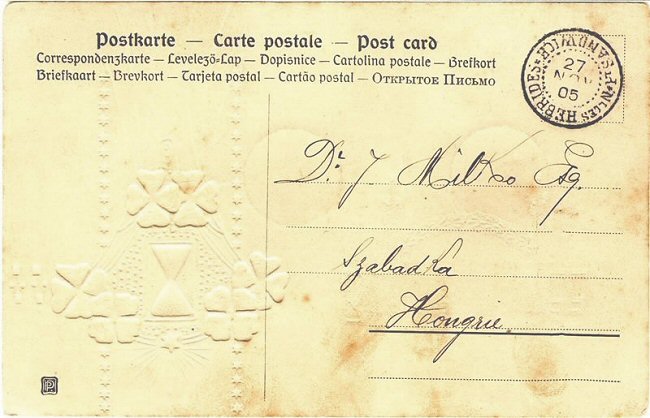 Postkarte — Carte postale — Post card
Correspondenzkarte — Levelező-Lap — Dopisnice — Cartolina postale — Brefkort
Briefkaart — Brevkort — Tarjeta postal — Cartão postal — Открытое Письмо
HEBRIDES
27
NOV
05
Dr. J Milko Esq.
Szabadka
Hongrie.